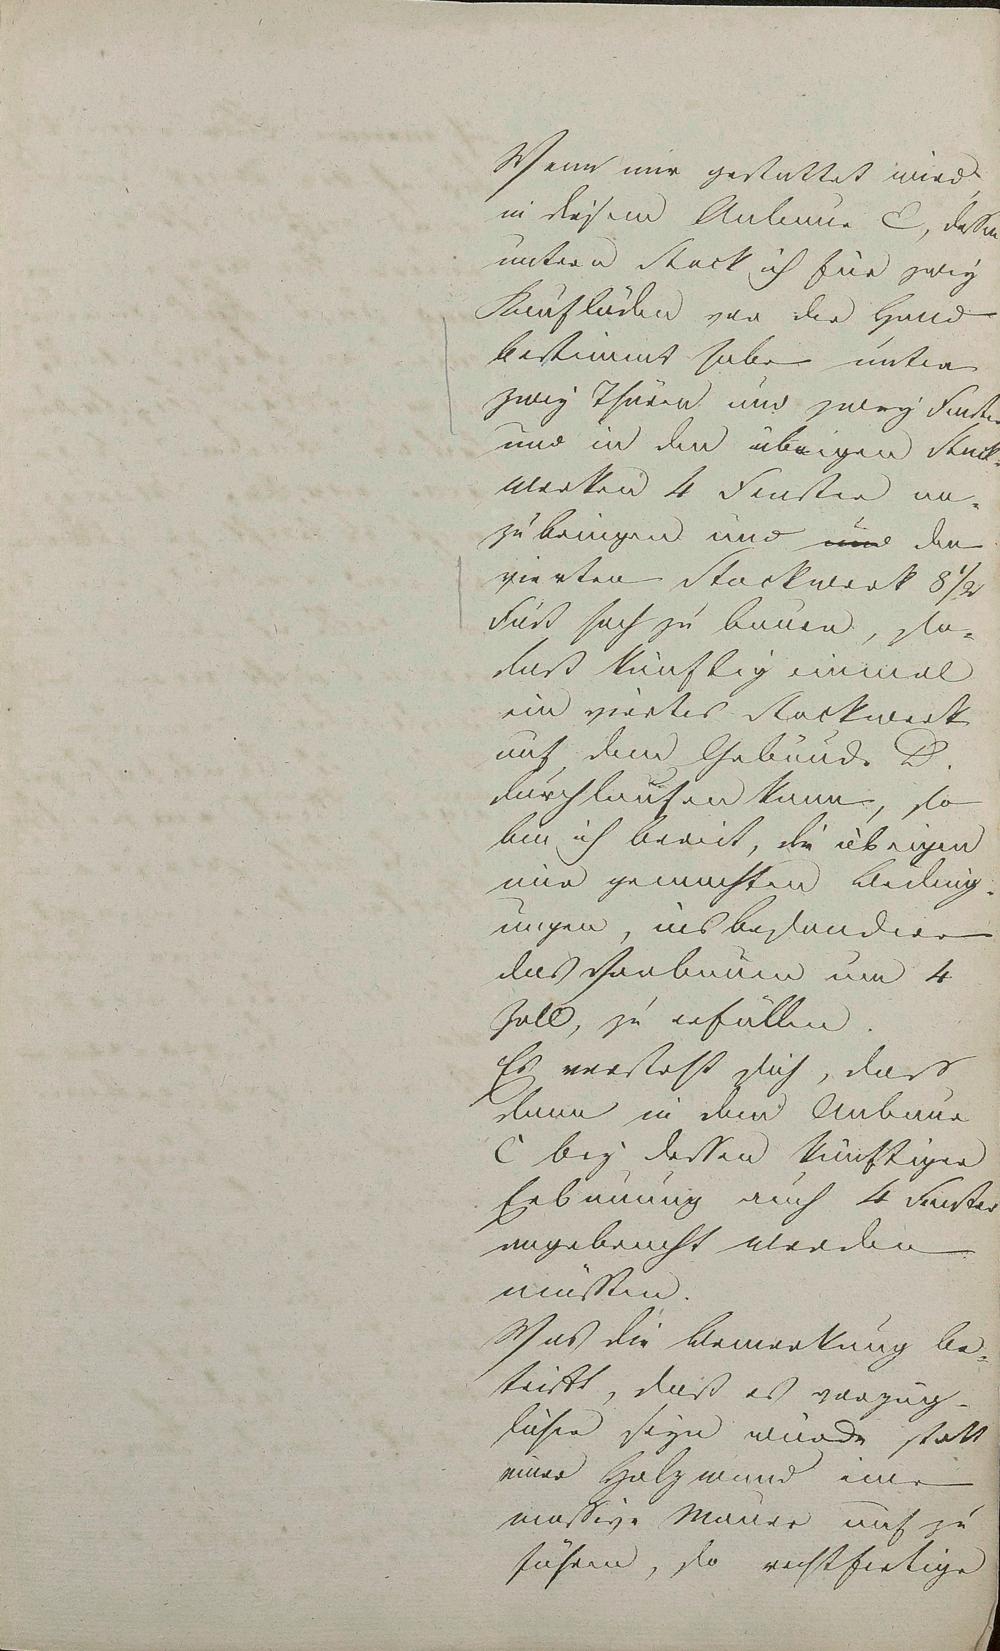 Wenn mir gestattet wird,
in diesem Anbaue C, dessen
untern Stock ich für zwey
Kaufläden vor der Hand
bestimmt habe unten
zwey Thüren und zwey Fenster
und in den übrigen Stock-
werken 4 Fenster an-
zubringen und den
vierten Stockwerk 8 1/2
Fuß hoch zu bauen, so-
daß künftig einmal
ein viertes Stockwerk
auf dem Gebäude D.
durchlaufen kann, so
bin ich bereit, die übrigen
mir gemachten Beding-
ungen, insbesondere
das Vorbauen um 4
Zoll, zu erfüllen.
Es versteht sich, dass
dann in dem Anbaue
C bey dessen künftiger
Erbauung auch 4 Fenster
angebracht werden
müssen.
Was die Bemerkung be-
trifft, daß es vorzüg-
licher seyn würde statt
einer Holzwand eine
massive Mauer auf zu
führen, so rechtfertige